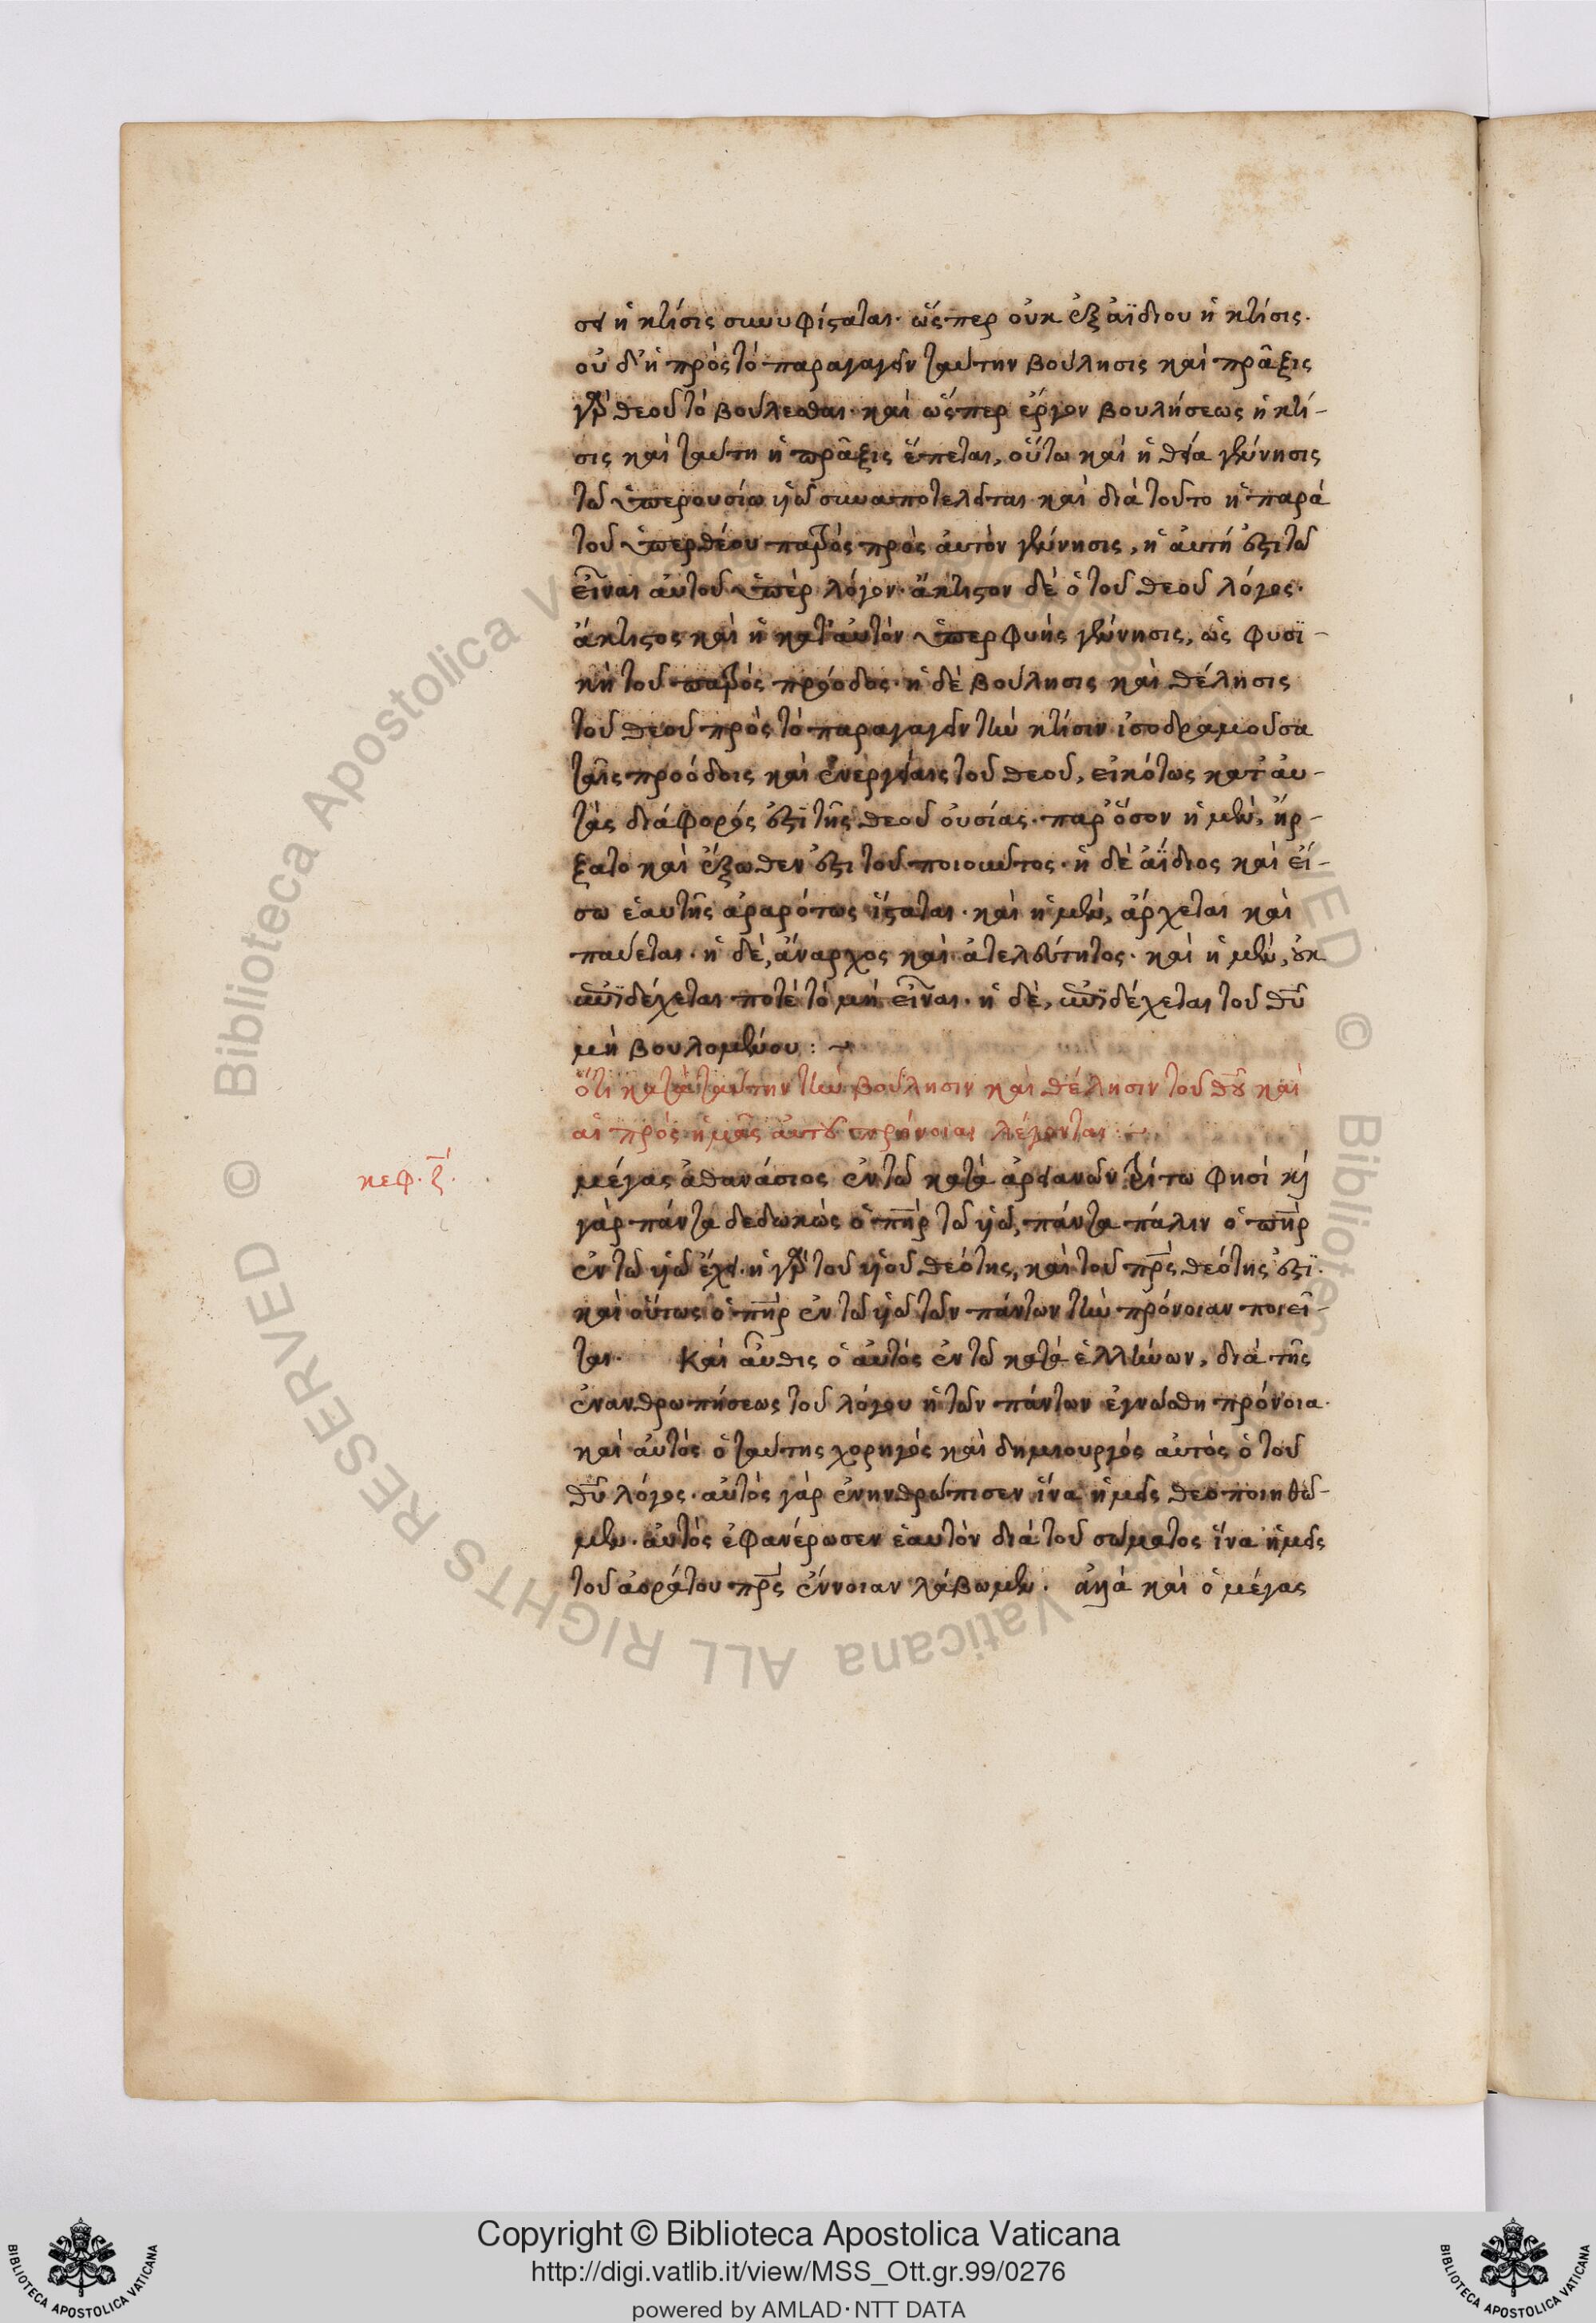 σει ἡ κτίσις συνυφίσταται· ὥσπερ οὐκ ἐξ ἀϊδίου ἡ κτίσις·
οὐδ' ἡ πρὸς τὸ παραγαγεῖν ταύτην βούλησις καὶ πρᾶξις
γὰρ θεοῦ τὸ βούλεσθαι· καὶ ὥσπερ ἔργον βουλήσεως ἡ κτί-
σις καὶ ταύτη ἡ πρᾶξις ἕπεται, οὕτω καὶ ἡ θεία γέννησις
τῶ ὑπερουσίω υἱῶ συναποτελεῖται καὶ διὰ τοῦτο ἡ παρὰ
τοῦ ὑπερθέου πατρὸς πρὸς αὐτὸν γέννησις, ἡ αὐτή ἐστι τῶ
εἶναι αὐτοῦ ὑπὲρ λόγον· ἄκτιστον δὲ ὁ τοῦ θεοῦ λόγος·
ἄκτιστος καὶ ἡ κατ' αὐτὸν ὑπερφυὴς γέννησις, ὡς φυσϊ-
κὴ τοῦ πατρὸς πρόοδος· ἡ δὲ βούλησις καὶ θέλησις
τοῦ θεοῦ πρὸς τὸ παραγαγεῖν τὴν κτίσιν ἰσοδραμοῦσα
ταῖς προόδοις καὶ ἐνεργείαις τοῦ θεοῦ, εἰκότως κατ' αὐ-
τὰς διάφορός ἐστϊ τῆς θεοῦ οὐσίας· παρ' ὅσον ἡ μὲν, ἤρ-
ξατο καὶ ἔξωθεν ἐστι τοῦ ποιοῦντος· ἡ δὲ ἀΐδιος καὶ εἴ-
σω ἑαυτῆς ἀραρότως ἵσταται· καὶ ἡ μὲν, ἄρχεται καὶ
παύεται· ἡ δὲ, ἄναρχος καὶ ἀτελεύτητος· καὶ ἡ μὲν, οὐκ
ἐπϊδέχεται ποτὲ τὸ μὴ εἶναι· ἡ δὲ, ἐπϊδέχεται τοῦ θῡ
μὴ βουλομένου :
ὅτι κατὰ ταύτην τὴν βούλησιν καὶ θέλησιν τοῦ θῡ καὶ
αἱ πρὸς ἡμᾶς αὐτοῦ προνοιαι λέγονται :
κεφ. ξ̄.
μέγας ἀθανάσιος ἐν τῶ κατὰ ἀρειανῶν τρίτω φησὶ καὶ
γὰρ πάντα δεδωκὼς ὁ πη̄ρ τῶ υἱῶ, πάντα πάλιν ὁ πη̄ρ
ἐν τῶ υἱῶ ἔχει· ἡ γὰρ τοῦ υἱοῦ θεότης, καὶ τοῦ πρ̄ς θεότης ἐστϊ·
καὶ οὕτως ὁ πη̄ρ ἐν τῶ υἱῶ τῶν πάντων τὴν πρόνοιαν ποιεῖ-
ται· Καὶ αὖθις ὁ αὐτὸς ἐν τῶ κατὰ ἑλλήνων, διὰ τῆς
ἐνανθρωπήσεως τοῦ λόγου ἡ τῶν πάντων ἐγνώσθη πρόνοια·
καὶ αὐτὸς ὁ ταύτης χορηγὸς καὶ δημιουργὸς αὐτὸς ὁ τοῦ
θῡ λόγος· αὐτὸς γὰρ ἐνηνθρώπισεν ἵνα ἡμεῖς θεοποιηθῶ-
μεν· αὐτὸς ἐφανέρωσεν ἑαυτὸν διὰ τοῦ σώματος ἵνα ἡμεῖς
τοῦ ἀοράτου πρ̄ς ἔννοιαν λάβωμεν. ἀλλὰ καὶ ὁ μέγας
© Biblioteca Apostolica Vaticana ALL RIGHTS RESERVED
Copyright © Biblioteca Apostolica Vaticana
http://digi.vatlib.it/view/MSS_Ott.gr.99/0276
powered by AMLAD·NTT DATA
BIBLIOTECA APOSTOLICA VATICANA
BIBLIOTECA APOSTOLICA VATICANA